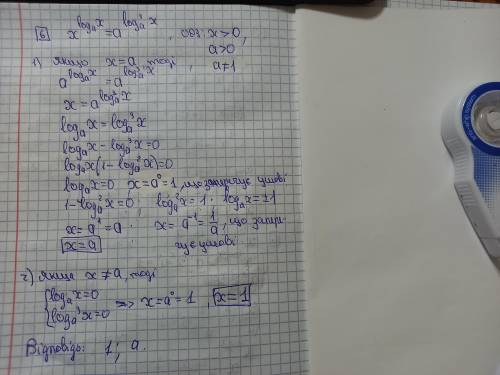 6 x^(log_a x) = a^(log_a^3 x), ОДЗ: x>0,
a>0
1) якщо x=a, тоді, a≠1
a^(log_a x) = a^(log_a^3 x)
x = a^(log_a^3 x)
log_a x = log_a^3 x
log_a x - log_a^3 x = 0
log_a x(1 - log_a^2 x) = 0
log_a x = 0, x = a^0 = 1, що заперечує умові
1 - log_a^2 x = 0, log_a^2 x = 1. log_a x = ±1
x = a^1 = a. x = a^-1 = 1/a, що запере-
x = a чує умові
2) Якщо x ≠ a, тоді
{log_a x = 0
{log_a^3 x = 0 => x = a^0 = 1, x = 1
Відповідь: 1; a.